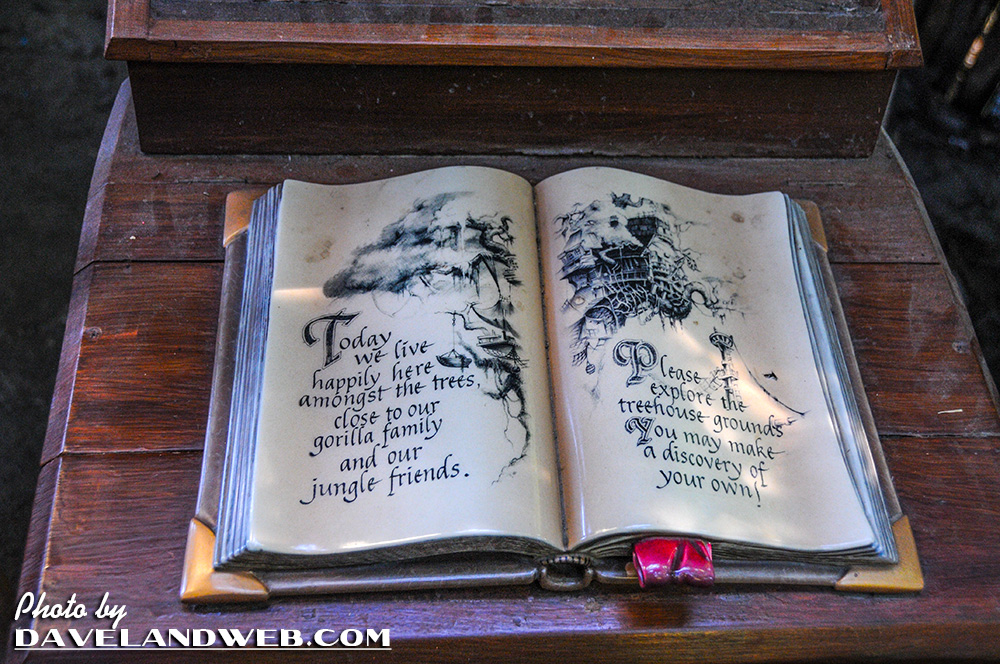 Today
we live
happily here
amongst the trees,
close to our
gorilla family
and our
jungle friends.
Please
explore the
treehouse grounds
You may make
a discovery of
your own!
Photo by
DAVELANDWEB.COM